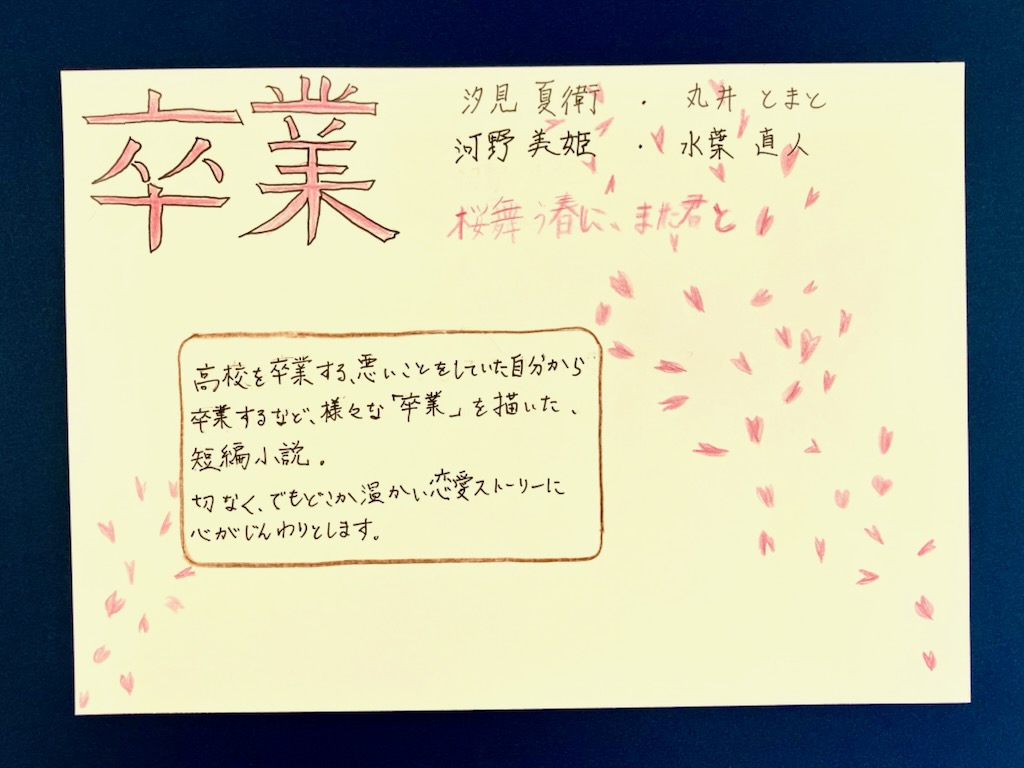 卒業
汐見 夏衛 ・ 丸井 とまと
河野 美姫 ・ 水葉 直人
桜舞う春に、また君と
高校を卒業する、悪いことをしていた自分から
卒業するなど、様々な「卒業」を描いた、
短編小説。
切なく、でもどこか温かい恋愛ストーリーに
心がじんわりとします。